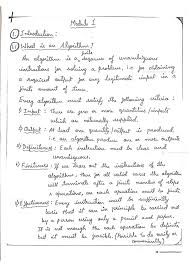 Module 1
1) Introduction:
1.1) What is an Algorithm?
finite
An algorithm is a sequence of unambiguous
instructions for solving a problem, i.e. for obtaining
a required output for any legitimate input in a
finite amount of time.
Every algorithm must satisfy the following criteria:
Input: There are zero or more quantities/inputs
which are externally supplied.
Output: At least one quantity/output is produced
algorithm produces one or more output
Definiteness: Each instruction must be clear
and unambiguous.
Finiteness: If we trace out the instructions of
the algorithm, then for all valid cases the algorithm
will terminate after a finite number of steps
Every instruction must be sufficiently
basic that it can in principle be carried out
by a person using only a pencil and paper.
It is not enough that each operation be definite
but it must also be feasible.